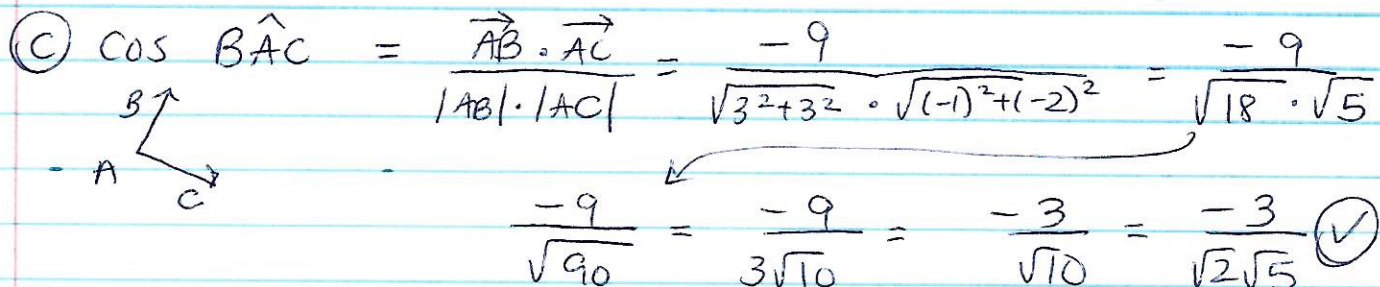 (C) cos BÂC = AB⃗ · AC⃗ / |AB| · |AC| = -9 / √(3²+3²) · √((-1)²+(-2)²) = -9 / √18 · √5
B
A
C
-9 / √90 = -9 / 3√10 = -3 / √10 = -3 / √2√5 ✓